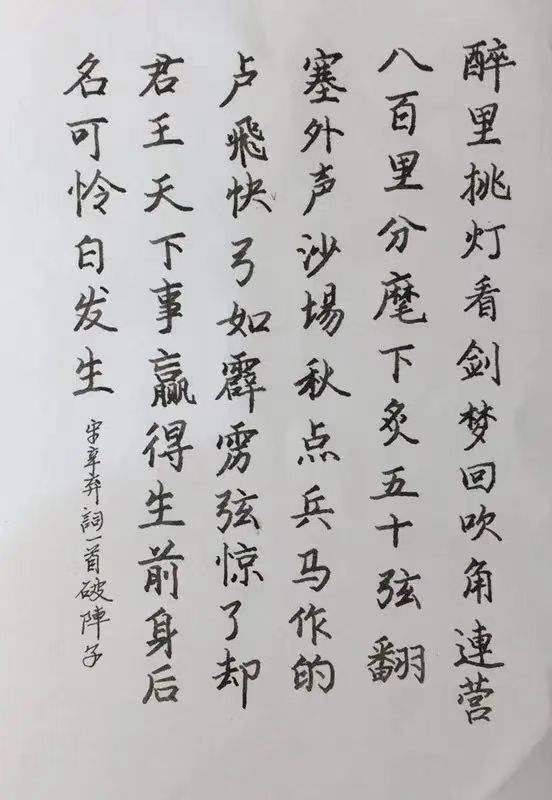 醉里挑灯看剑梦回吹角連营
八百里分麾下炙五十弦翻
塞外声沙場秋点兵马作的
卢飛快弓如霹雳弦惊了却
君王天下事赢得生前身后
名可怜白发生
宋辛弃詞一首破陣子